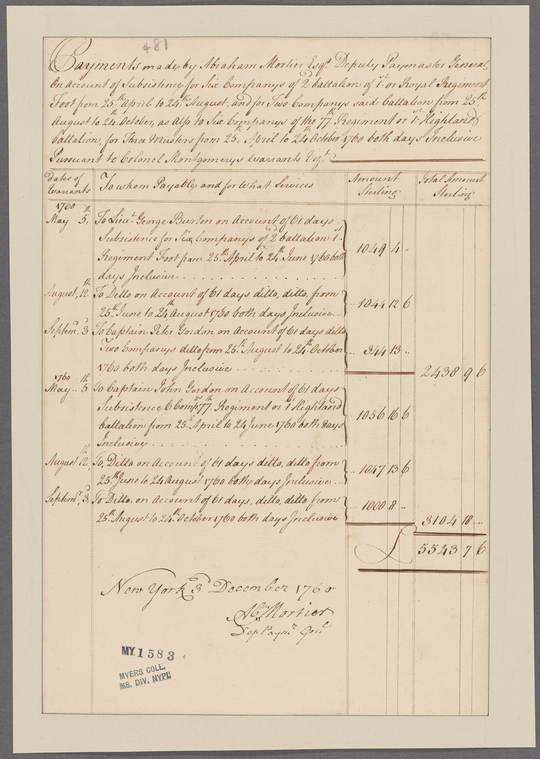 481
Payments made by Abraham Mortier Esqr. Deputy Paymaster General
On Account of Subsistence for Six Companys of 2d battalion of 1st. or Royal Regiment
Foot from 25th April to 24th August, and for Two Companys said battalion from 25th
August to 24 October, as Also to Six Companys of the 77th Regiment or 1st Highland
battalion, for Three Musters from 25th April to 24th October 1760 both days Inclusive
Pursuant to Colonel Montgomerys Warrants Vizt.
Dates of Warrants To whom Payable, and for What Services Amount Sterling Total Amount Sterling
1760
May 5th, To Lieut. George Burton on Account of 61 days
Subsistence for Six Companys of 2d battalion 1st
Regiment Foot from 25th April to 24th June 1760 both 1049 4 ..
days Inclusive
August, 12th To Ditto on Account of 61 days ditto, ditto, from
25th June to 24th August 1760 both days Inclusive .. 1044 12 6
Septemr. 3d To Captain Peter Gordon on Account of 61 days ditto
Two Companys ditto from 25th August to 24th October .. 344 13 ..
1760 both days Inclusive 2438 9 6
1760
May .. 5th To Captain John Gordon on Account of 61 days
Subsistence 6 Comps 77th Regiment or 1st Highland
battalion from 25 April to 24 June 1760 both days 1056 16 6
Inclusive
August 12th, To, Ditto on Account of 61 days ditto, ditto from
25th June to 24 August 1760 both days Inclusive .. 1047 13 6
Septemr. 3d, To Ditto, on Account of 61 days, ditto, ditto from
25th August to 24th October 1760 both days Inclusive .. 1000 8 .. 3104 18 ..
£ 5543 7 6
New York 3d December 1760
Abm Mortier
Dep Paymr. Genl.
MY 1583
MYERS COLL.
MS. DIV. NYPL